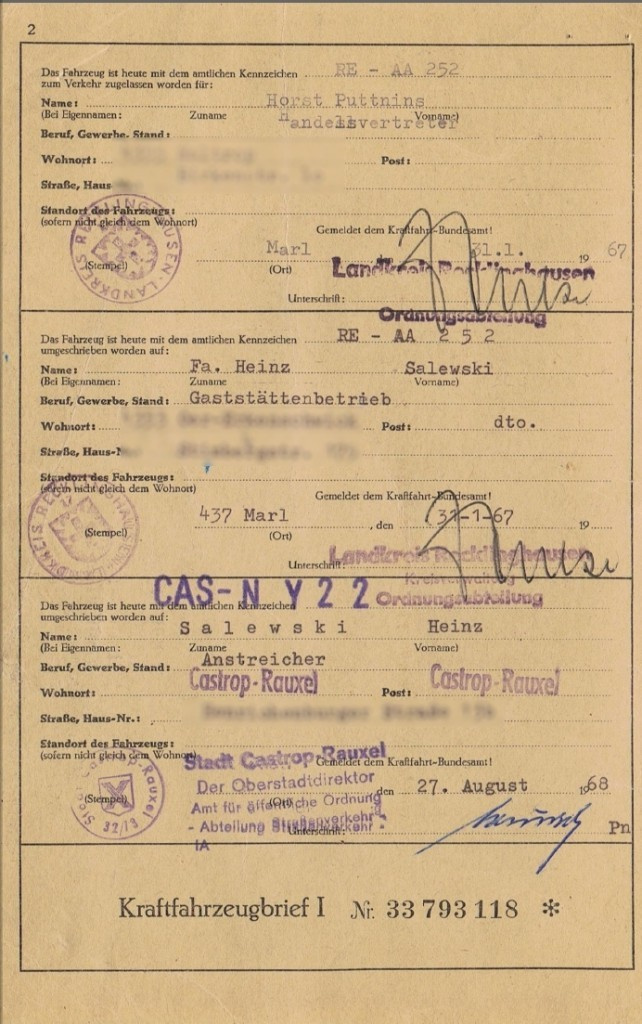 2
Das Fahrzeug ist heute mit dem amtlichen Kennzeichen RE - AA 252
zum Verkehr zugelassen worden für:
Name: Horst Puttnins
(Bei Eigennamen: Zuname Vorname)
Handelsvertreter
Beruf, Gewerbe, Stand:
Wohnort: Post:
Straße, Haus
Standort des Fahrzeugs:
(sofern nicht gleich dem Wohnort)
Gemeldet dem Kraftfahrt-Bundesamt!
Marl 31.1. 1967
(Stempel) (Ort)
LANDKREIS RECKLINGHAUSEN
Landkreis Recklinghausen
Unterschrift:
Ordnungsabteilung
Das Fahrzeug ist heute mit dem amtlichen Kennzeichen RE - AA 252
umgeschrieben worden auf:
Name: Fa. Heinz Salewski
(Bei Eigennamen: Zuname Vorname)
Beruf, Gewerbe, Stand: Gaststättenbetrieb
Wohnort: Post: dto.
Straße, Haus-N
Standort des Fahrzeugs:
(sofern nicht gleich dem Wohnort)
Gemeldet dem Kraftfahrt-Bundesamt!
437 Marl, den 31-1-67 19
(Stempel) (Ort)
Landkreis Recklinghausen
Unterschrift:
Kreisverwaltung
Ordnungsabteilung
CAS-N Y 22
Das Fahrzeug ist heute mit dem amtlichen Kennzeichen
umgeschrieben worden auf:
Name: Salewski Heinz
(Bei Eigennamen: Zuname Vorname)
Beruf, Gewerbe, Stand: Anstreicher
Wohnort: Castrop-Rauxel Post: Castrop-Rauxel
Straße, Haus-Nr.:
Standort des Fahrzeugs:
(sofern nicht gleich dem Wohnort)
Stadt Castrop-Rauxel
Gemeldet dem Kraftfahrt-Bundesamt!
Der Oberstadtdirektor
den 27. August 1968
(Stempel) (Ort)
32/13
Amt für öffentliche Ordnung
- Abteilung Straßenverkehr -
Unterschrift: Pn
IA
Kraftfahrzeugbrief I Nr. 33 793 118 *